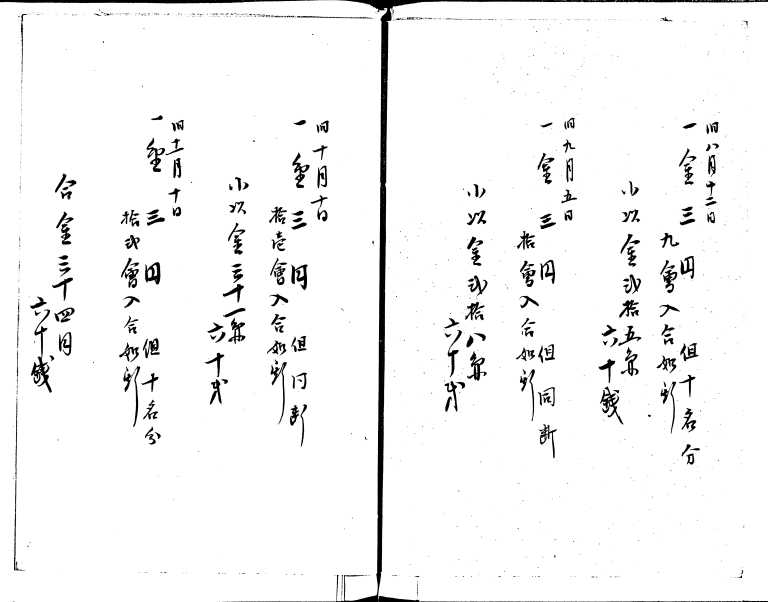 旧八月十二日
一金三円 但十名分
九會入合如斯
小以金弐拾五円
六十銭
旧九月五日
一金三円 但同断
拾會入合如斯
小以金弐拾八円
六十銭
旧十月十日
一金三円 但同断
拾壱會入合如斯
小以金三十一円
六十銭
旧十一月十日
一金三円 但十名分
拾弐會入合如斯
合金三十四円
六十銭